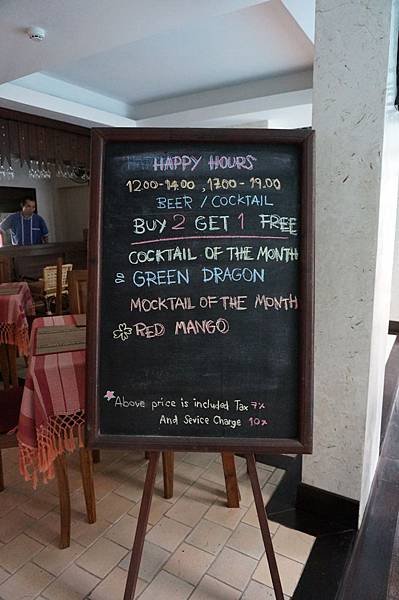 HAPPY HOURS
12.00-14.00 , 17.00 - 19.00
BEER / COCKTAIL
BUY 2 GET 1 FREE
COCKTAIL OF THE MONTH
GREEN DRAGON
MOCKTAIL OF THE MONTH
RED MANGO
Above price is included Tax 7%
And Sevice Charge 10%